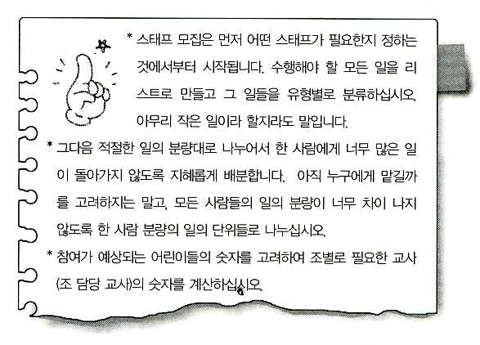 * 스태프 모집은 먼저 어떤 스태프가 필요한지 정하는
것에서부터 시작됩니다. 수행해야 할 모든 일을 리
스트로 만들고 그 일들을 유형별로 분류하십시오.
아무리 작은 일이라 할지라도 말입니다.
* 그다음 적절한 일의 분량대로 나누어서 한 사람에게 너무 많은 일
이 돌아가지 않도록 지혜롭게 배분합니다. 아직 누구에게 맡길까
를 고려하지는 말고, 모든 사람들의 일의 분량이 너무 차이 나지
않도록 한 사람 분량의 일의 단위들로 나누십시오.
* 참여가 예상되는 어린이들의 숫자를 고려하여 조별로 필요한 교사
(조 담당 교사)의 숫자를 계산하십시오.